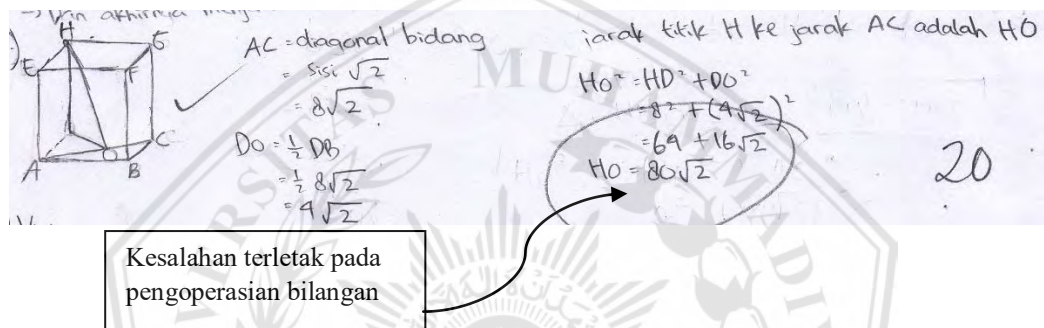 → Dan akhirnya
H
G
E
F
C
O
A
B
AC = diagonal bidang
= sisi √2
= 8√2
DO = ½ DB
= ½ 8√2
= 4√2
jarak titik H ke jarak AC adalah HO
HO² = HD² + DO²
= 8² + (4√2)²
= 64 + 16√2
HO = 80√2
20
Kesalahan terletak pada
pengoperasian bilangan
MUHA
SITAS